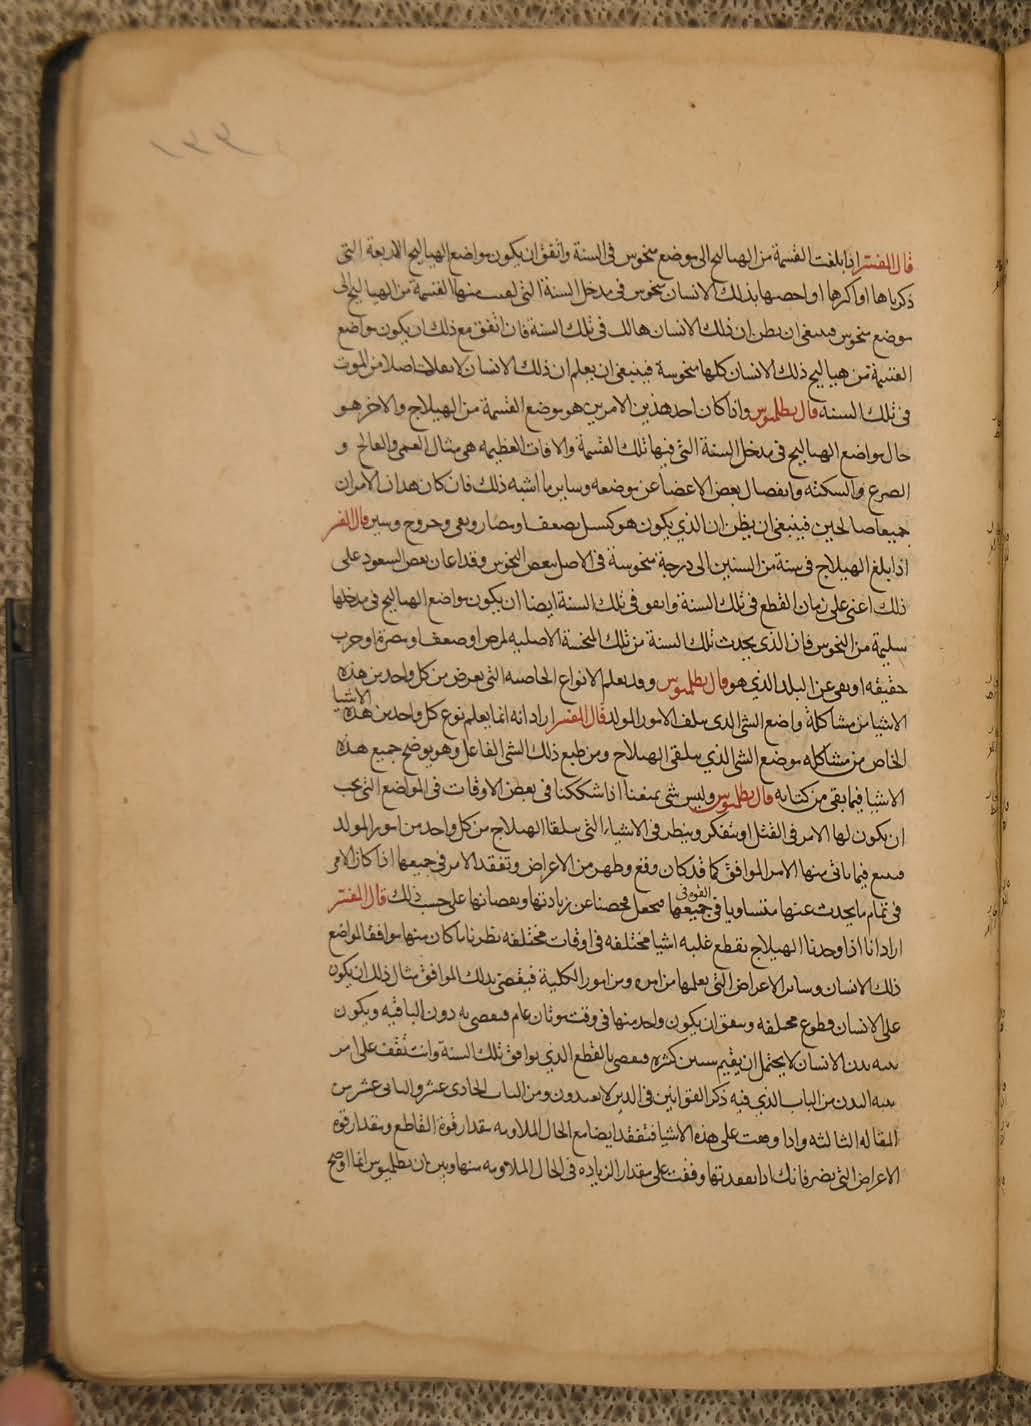 قال المفسر اذا بلغت القسمة من الهياليج الى موضع منحوس فى السنة واتفق ان يكون مواضع الهياليج الاربعة التى
ذكرناها او اكثرها او احصها بذلك الانسان منحوس فى مدخل السنة التى لعب منها القسمة من الهياليج الى
موضع منحوس فينبغى ان يظن ان ذلك الانسان هالك فى تلك السنة فان اتفق مع ذلك ان يكون مواضع
القسمة من هياليج ذلك الانسان كلها منحوسة فينبغى ان يعلم ان ذلك الانسان لا يفلت اصلا من الموت
فى تلك السنة قال بطلميوس واذا كان احد هذين الامرين هو موضع القسمة من الهيلاج والاخر هو
حال مواضع الهياليج فى مدخل السنة التى فيها تلك القسمة والافات العظيمه هى مثال العمى والفالج و
الصرع والسكته وانفصال بعض الاعضا عن موضعه وساير ما اشبه ذلك فان كان هذان الامران
جميعا صالحين فينبغى ان يظن ان الذي يكون هو كسل وضعف ومضار ونفى وخروج وسير قال المفسر
اذا بلغ الهيلاج فى سنة من السنين الى درجة منحوسة فى الاصل ببعض النحوس وقد اعان بعض السعود على
ذلك اعنى على زمان القطع فى تلك السنة واتفق فى تلك السنة ايضا ان يكون مواضع الهياليج فى مدخلها
سليمة من النحوس فان الذى يحدث تلك السنة من تلك المنحسة الاصليه لمرض او ضعف او مضرة او حرب
حقيقه او نفى عن البلد الذي هو قال بطلميوس وقد يعلم الانواع الخاصه التى يعرض من كل واحد من هذه
الاشيا من مشاكلة واضع الشى الذى سلف الامور المولد قال المفسر اراد انه انما يعلم نوع كل واحد من هذه الاشيا
الخاص من مشاكله موضع الشى الذي يتلقى الهيلاج ومن طبع ذلك الشى الفاعل وهو يوضح جميع هذه
الاشيا فيما بقى من كتابه قال بطلميوس وليس شى يمنعنا اذا شككنا فى بعض الاوقات فى المواضع التى يجب
ان يكون لها الامر فى القتل او نتفكر وينظر فى الاشياء التى يتلقا الهيلاج من كل واحد من امور المولد
فيتبع فيما ياتى منها الامر الموافق كما قد كان وقع وظهر من الاعراض وتفقد الامر فى جميعها اذا كان الامر
فى تمام ما يحدث عنها متساويا فى القوه فى جميعها فيجعل فحصنا عن زيادتها ونقصانها على حسب ذلك قال المفسر
اراد انا اذا وجدنا الهيلاج يقطع عليه اشيا مختلفه فى اوقات مختلفه نظرنا ما كان منها موافقا لمواضع
ذلك الانسان وساير الاعراض التى يعلمها من امره ومن امور الكلية فيقضى بذلك الموافق مثال ذلك ان يكون
على الانسان قطوع مختلفه ويتفق ان يكون واحد منها فى وقت موتان عام فيقضى به دون الباقيه ويكون
بنيه بدن الانسان لا يحتمل ان يقيم سنين كثره فيقضى بالقطع الذي يوافق تلك السنة وانت تقف على امر
بنيه البدن من الباب الذي فيه ذكر القوانين فى الدين لا يعبدون ومن الباب الحادى عشر والثانى عشر من
المقاله الثالثه واذا وقعت على هذه الاشيا فتفقد ايضا مع الحال الملاومه مقدار قوة القاطع ومقدار قوه
الاعراض التى يضر فانك اذا تفقدتها وقفت على مقدار الزياده فى الحال الملاومه منها وبين بان بطلميوس انما اوضح